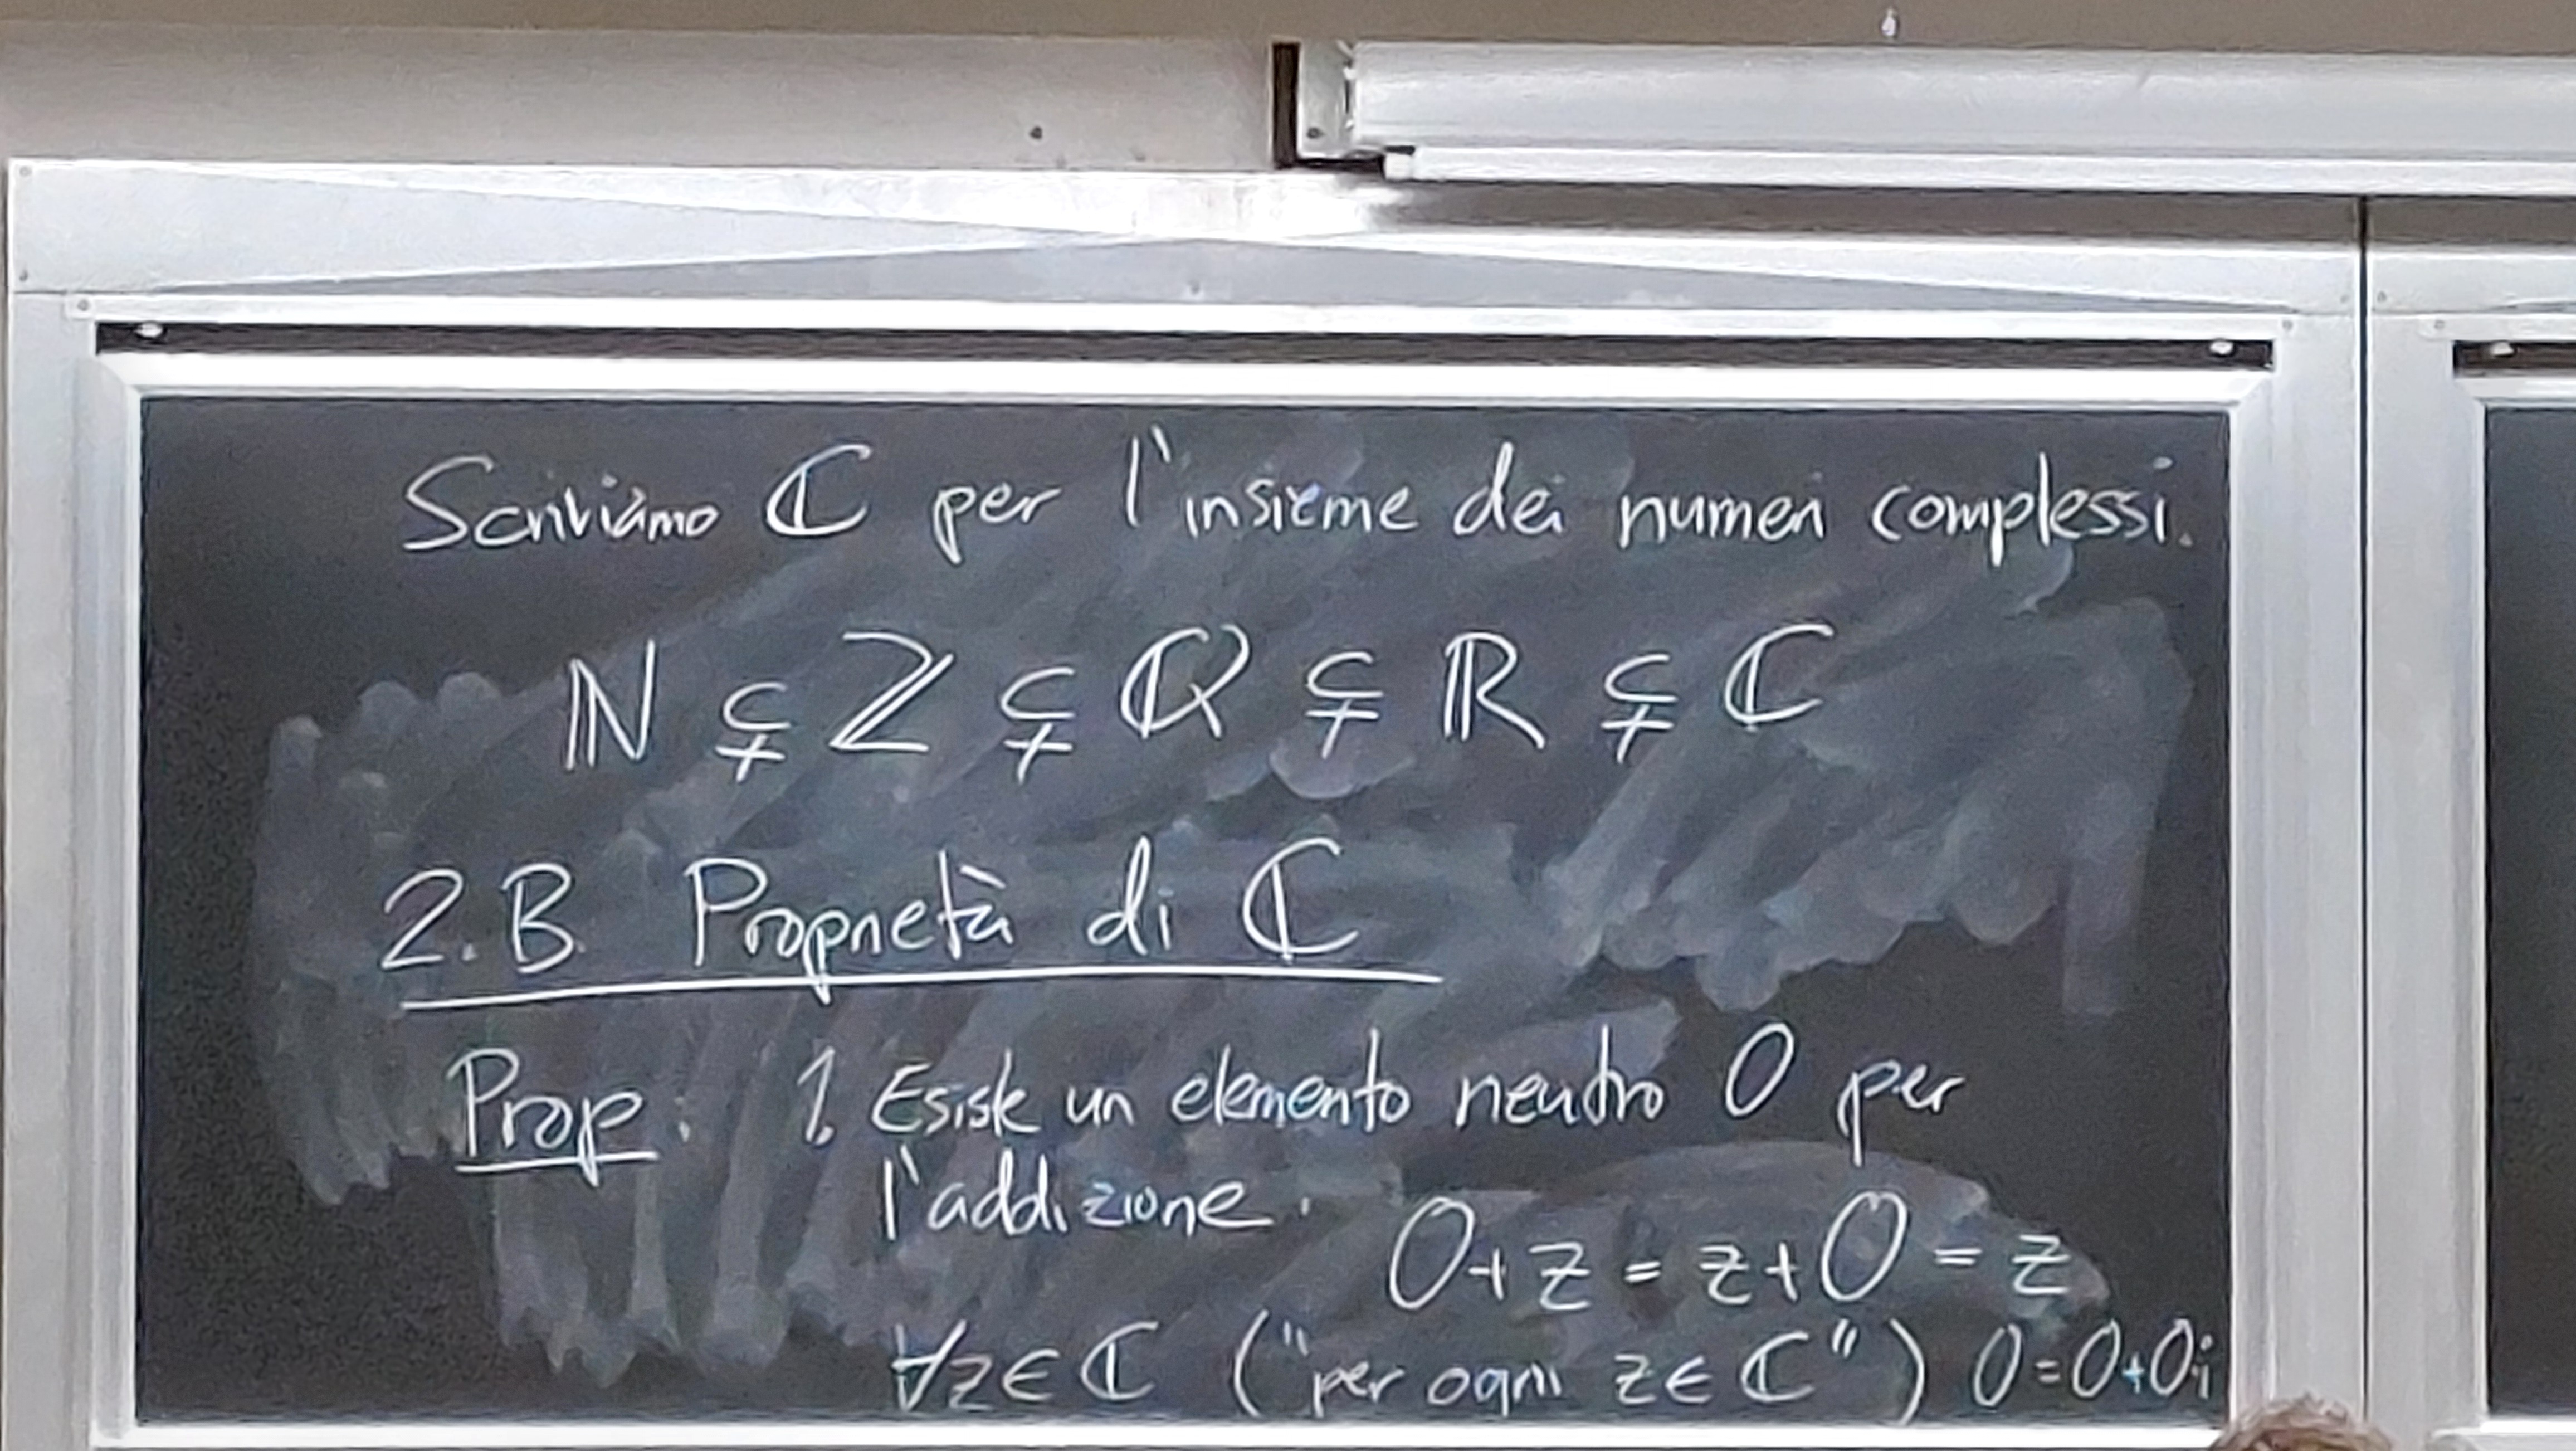 Scriviamo ℂ per l'insieme dei numeri complessi.
ℕ ⊊ ℤ ⊊ ℚ ⊊ ℝ ⊊ ℂ
2.B. Proprietà di ℂ
Prop: 1. Esiste un elemento neutro 0 per
l'addizione.
0+z = z+0 = z
∀z∈ℂ ("per ogni z∈ℂ") 0=0+0i